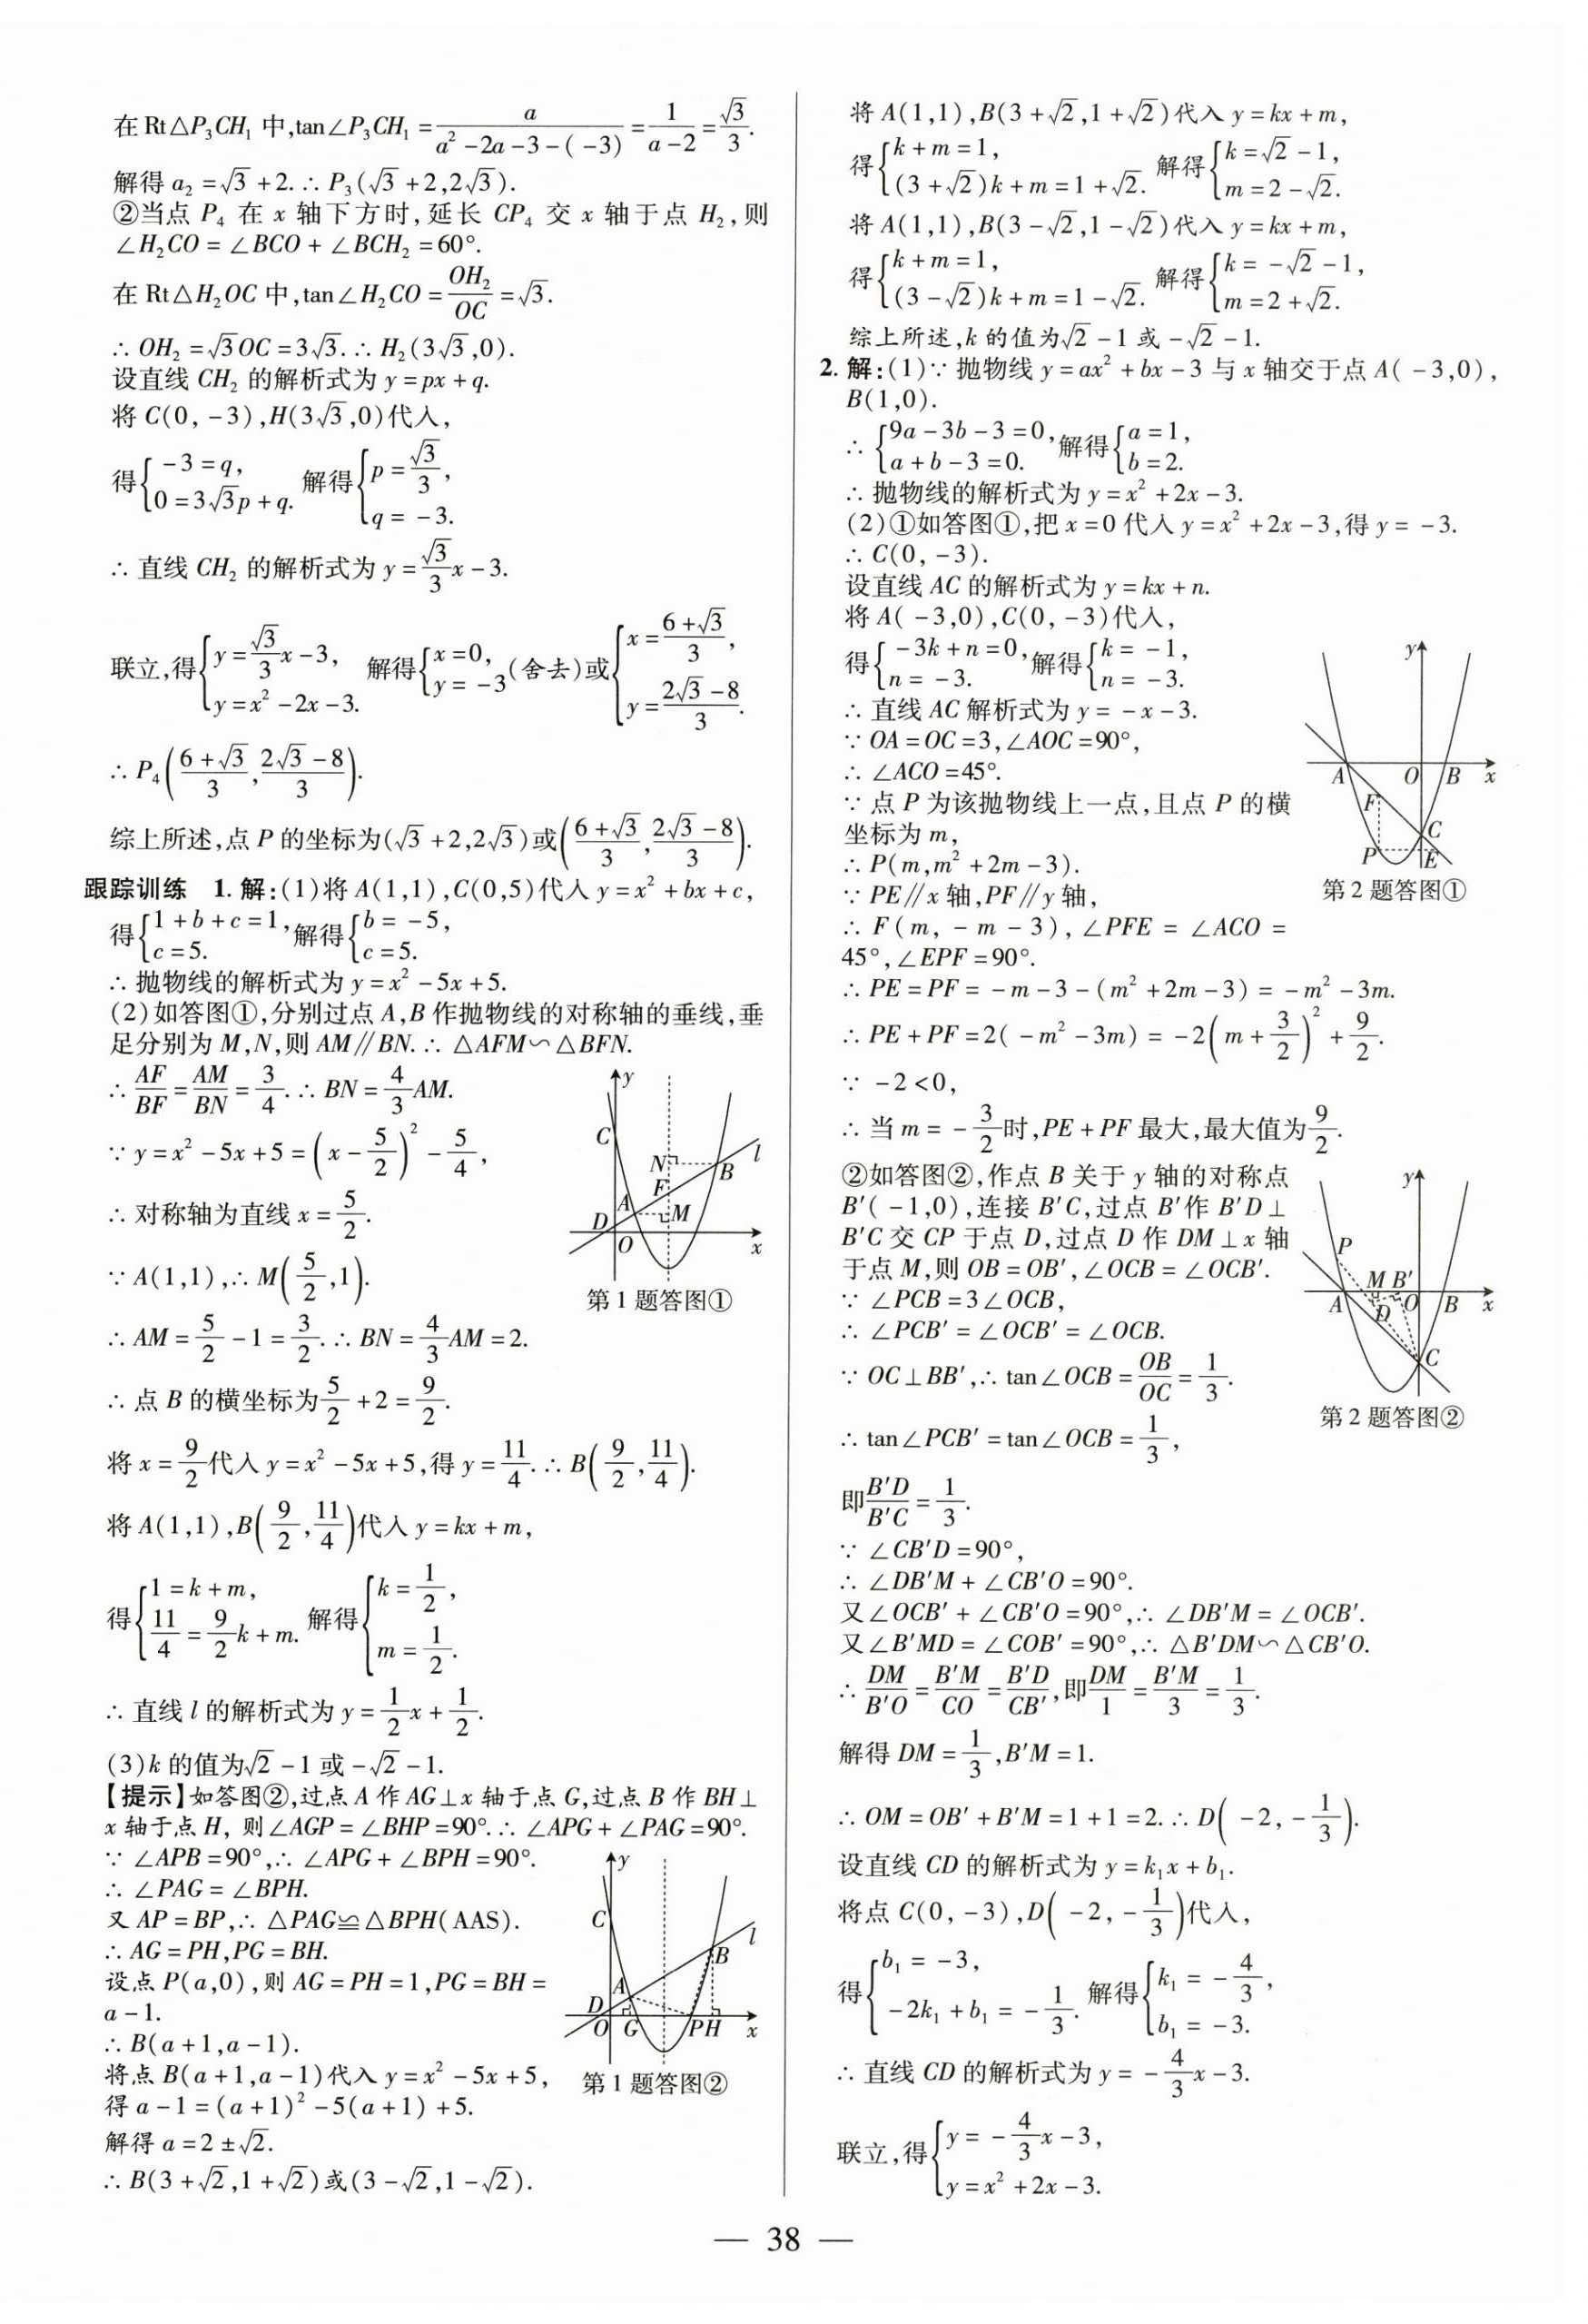 在 Rt△P₃CH₁ 中,tan∠P₃CH₁ = a/(a² - 2a - 3 - ( - 3)) = 1/(a - 2) = √3/3.
解得 a₂ = √3 + 2. ∴ P₃(√3 + 2,2√3).
②当点 P₄ 在 x 轴下方时,延长 CP₄ 交 x 轴于点 H₂,则
∠H₂CO = ∠BCO + ∠BCH₂ = 60°.
在 Rt△H₂OC 中,tan∠H₂CO = OH₂/OC = √3.
∴ OH₂ = √3OC = 3√3. ∴ H₂(3√3,0).
设直线 CH₂ 的解析式为 y = px + q.
将 C(0, - 3),H(3√3,0)代入,
得{ - 3 = q, 0 = 3√3p + q. 解得{p = √3/3, q = - 3.
∴ 直线 CH₂ 的解析式为 y = √3/3x - 3.
联立,得{y = √3/3x - 3, y = x² - 2x - 3. 解得{x = 0, y = - 3(舍去)或{x = (6 + √3)/3, y = (2√3 - 8)/3.
∴ P₄((6 + √3)/3,(2√3 - 8)/3).
综上所述,点 P 的坐标为(√3 + 2,2√3)或((6 + √3)/3,(2√3 - 8)/3).
跟踪训练 1. 解:(1)将 A(1,1),C(0,5)代入 y = x² + bx + c,
得{1 + b + c = 1, c = 5. 解得{b = - 5, c = 5.
∴ 抛物线的解析式为 y = x² - 5x + 5.
(2)如答图①,分别过点 A,B 作抛物线的对称轴的垂线,垂
足分别为 M,N,则 AM∥BN. ∴ △AFM∽△BFN.
∴ AF/BF = AM/BN = 3/4. ∴ BN = 4/3AM.
∵ y = x² - 5x + 5 = (x - 5/2)² - 5/4,
∴ 对称轴为直线 x = 5/2.
∵ A(1,1),∴ M(5/2,1).
∴ AM = 5/2 - 1 = 3/2. ∴ BN = 4/3AM = 2.
∴ 点 B 的横坐标为5/2 + 2 = 9/2.
y
C
N
B
l
F
A
M
D
O
x
第 1 题答图①
将 x = 9/2代入 y = x² - 5x + 5,得 y = 11/4. ∴ B(9/2,11/4).
将 A(1,1),B(9/2,11/4)代入 y = kx + m,
得{1 = k + m, 11/4 = 9/2k + m. 解得{k = 1/2, m = 1/2.
∴ 直线 l 的解析式为 y = 1/2x + 1/2.
(3)k 的值为√2 - 1 或 - √2 - 1.
【提示】如答图②,过点 A 作 AG⊥x 轴于点 G,过点 B 作 BH⊥
x 轴于点 H, 则∠AGP = ∠BHP = 90°. ∴ ∠APG + ∠PAG = 90°.
∵ ∠APB = 90°,∴ ∠APG + ∠BPH = 90°.
∴ ∠PAG = ∠BPH.
又 AP = BP,∴ △PAG≌△BPH(AAS).
∴ AG = PH,PG = BH.
设点 P(a,0),则 AG = PH = 1,PG = BH =
a - 1.
∴ B(a + 1,a - 1).
将点 B(a + 1,a - 1)代入 y = x² - 5x + 5,
得 a - 1 = (a + 1)² - 5(a + 1) + 5.
解得 a = 2 ± √2.
∴ B(3 + √2,1 + √2)或(3 - √2,1 - √2).
y
C
l
B
A
D
O
G
P
H
x
第 1 题答图②
将 A(1,1),B(3 + √2,1 + √2)代入 y = kx + m,
得{k + m = 1, (3 + √2)k + m = 1 + √2. 解得{k = √2 - 1, m = 2 - √2.
将 A(1,1),B(3 - √2,1 - √2)代入 y = kx + m,
得{k + m = 1, (3 - √2)k + m = 1 - √2. 解得{k = - √2 - 1, m = 2 + √2.
综上所述,k 的值为√2 - 1 或 - √2 - 1.
2. 解:(1)∵ 抛物线 y = ax² + bx - 3 与 x 轴交于点 A( - 3,0),
B(1,0).
∴ {9a - 3b - 3 = 0, a + b - 3 = 0. 解得{a = 1, b = 2.
∴ 抛物线的解析式为 y = x² + 2x - 3.
(2)①如答图①,把 x = 0 代入 y = x² + 2x - 3,得 y = - 3.
∴ C(0, - 3).
设直线 AC 的解析式为 y = kx + n.
将 A( - 3,0),C(0, - 3)代入,
得{ - 3k + n = 0, n = - 3. 解得{k = - 1, n = - 3.
∴ 直线 AC 解析式为 y = - x - 3.
∵ OA = OC = 3,∠AOC = 90°,
∴ ∠ACO = 45°.
∵ 点 P 为该抛物线上一点,且点 P 的横
坐标为 m,
∴ P(m,m² + 2m - 3).
∵ PE∥x 轴,PF∥y 轴,
∴ F(m, - m - 3), ∠PFE = ∠ACO =
45°,∠EPF = 90°.
y
A
O
B
x
F
C
P
E
第 2 题答图①
∴ PE = PF = - m - 3 - (m² + 2m - 3) = - m² - 3m.
∴ PE + PF = 2( - m² - 3m) = - 2(m + 3/2)² + 9/2.
∵ - 2 < 0,
∴ 当 m = - 3/2时,PE + PF 最大,最大值为9/2.
②如答图②,作点 B 关于 y 轴的对称点
B′( - 1,0),连接 B′C,过点 B′作 B′D⊥
B′C 交 CP 于点 D,过点 D 作 DM⊥x 轴
于点 M,则 OB = OB′,∠OCB = ∠OCB′.
∵ ∠PCB = 3∠OCB,
∴ ∠PCB′ = ∠OCB′ = ∠OCB.
∵ OC⊥BB′,∴ tan∠OCB = OB/OC = 1/3.
∴ tan∠PCB′ = tan∠OCB = 1/3,
y
P
M
B′
A
D
O
B
x
C
第 2 题答图②
即B′D/B′C = 1/3.
∵ ∠CB′D = 90°,
∴ ∠DB′M + ∠CB′O = 90°.
又∠OCB′ + ∠CB′O = 90°,∴ ∠DB′M = ∠OCB′.
又∠B′MD = ∠COB′ = 90°,∴ △B′DM∽△CB′O.
∴ DM/B′O = B′M/CO = B′D/CB′,即DM/1 = B′M/3 = 1/3.
解得 DM = 1/3,B′M = 1.
∴ OM = OB′ + B′M = 1 + 1 = 2. ∴ D( - 2, - 1/3).
设直线 CD 的解析式为 y = k₁x + b₁.
将点 C(0, - 3),D( - 2, - 1/3)代入,
得{b₁ = - 3, - 2k₁ + b₁ = - 1/3. 解得{k₁ = - 4/3, b₁ = - 3.
∴ 直线 CD 的解析式为 y = - 4/3x - 3.
联立,得{y = - 4/3x - 3, y = x² + 2x - 3.
— 38 —